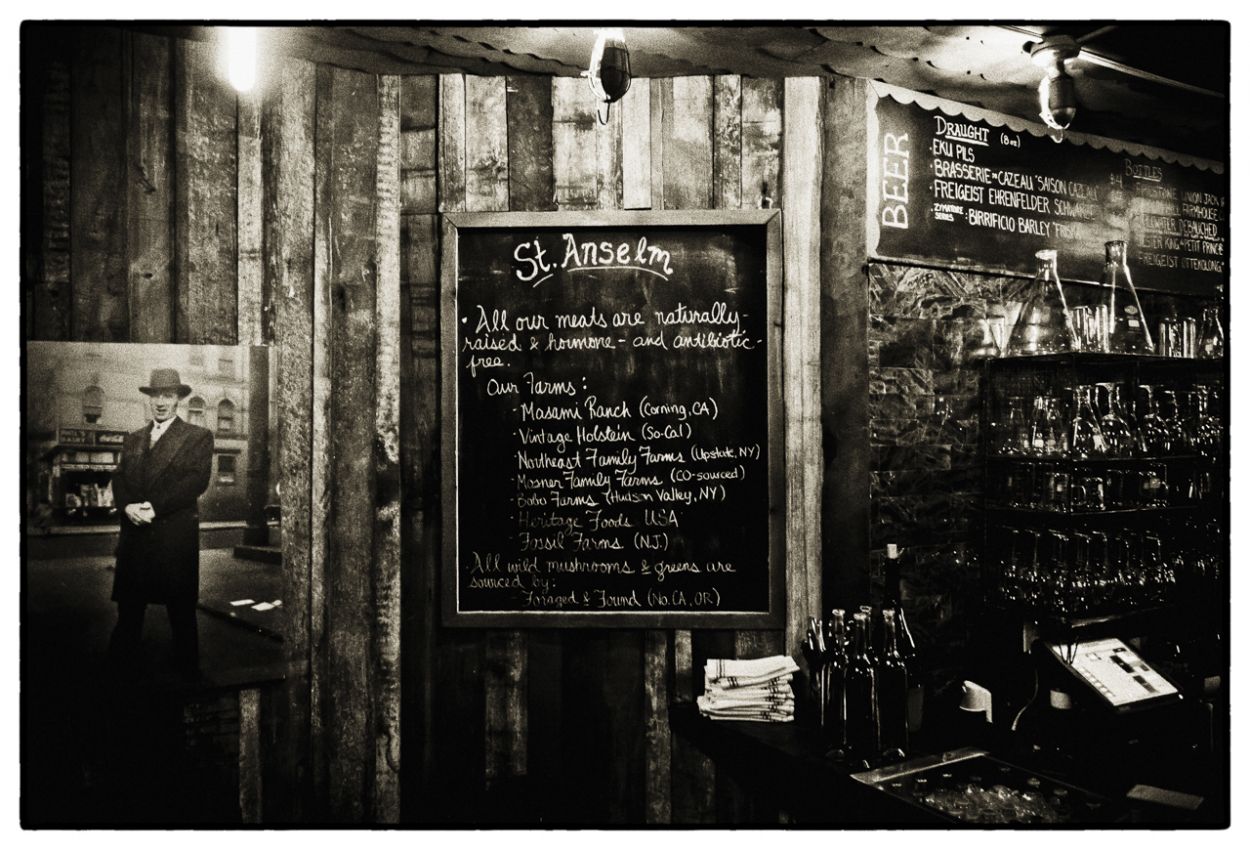 St. Anselm
· All our meats are naturally-
raised & hormone- and antibiotic-
free.
Our Farms:
- Masami Ranch (Corning, CA)
- Vintage Holstein (So-Cal)
- Northeast Family Farms (Upstate, NY)
- Mosner Family Farms (CO-sourced)
- Bobo Farms (Hudson Valley, NY)
- Heritage Foods USA
- Fossil Farms (N.J.)
· All wild mushrooms & greens are
sourced by:
- Foraged & Found (No. CA, OR)
BEER
DRAUGHT (8oz)
· EKU PILS
· BRASSERIE DE CAZEAU "SAISON CAZEAU"
· FREIGEIST EHRENFELDER SCHWARZE
ZYMATORE SERIES: BIRRIFICIO BARLEY "FRISKA"
$4
BOTTLES
UNION JACK
FARMHOUSE
DEBAUCHED
KING "PETIT PRINCE"
FREIGEIST OTTEKOLONG